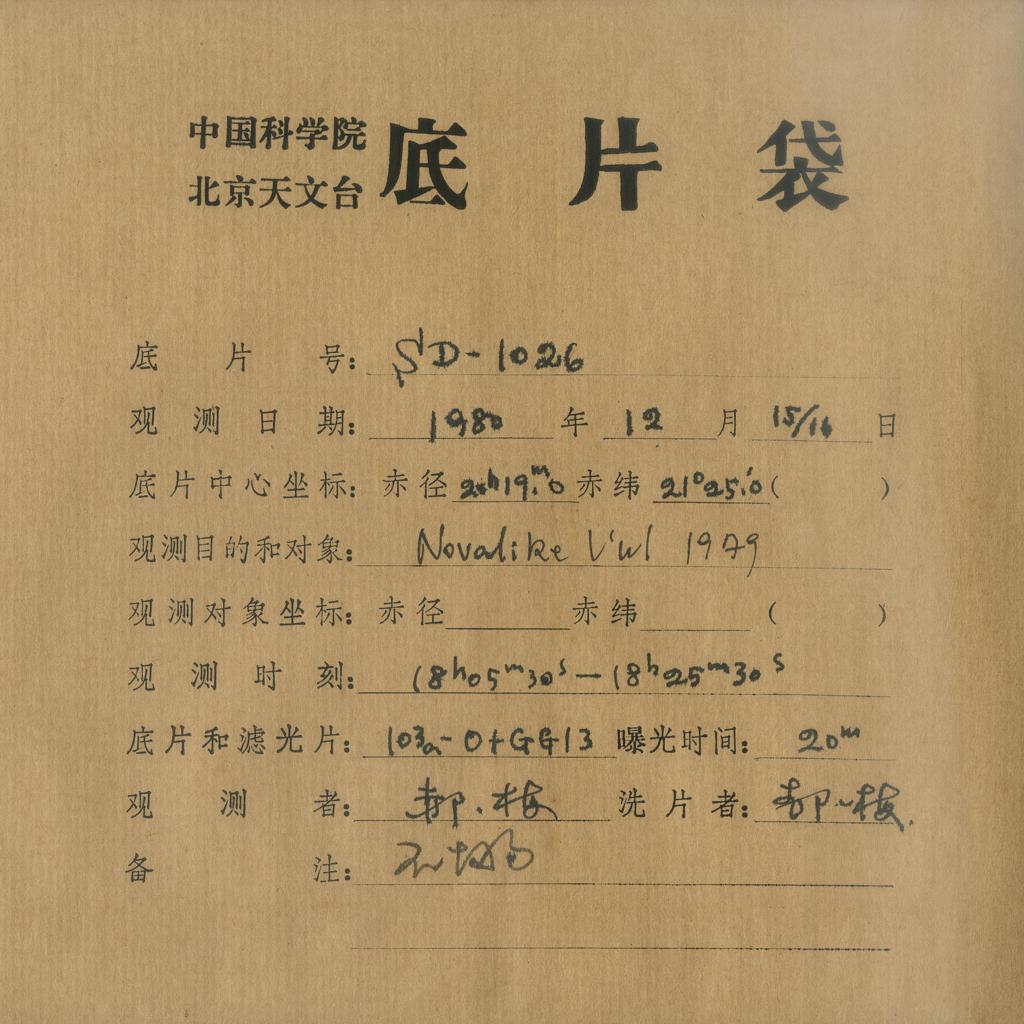 中国科学院
北京天文台
底片袋
底片号: SD-1026
观测日期: 1980年12月15/16日
底片中心坐标: 赤径20h19m.0赤纬21°25'.0( )
观测目的和对象: Novalike Vul 1979
观测对象坐标: 赤径 赤纬 ( )
观测时刻: 18h05m30s—18h25m30s
底片和滤光片: 103a-O+GG13 曝光时间: 20m
观测者: 郝、梅 洗片者: 郝、梅
备注: